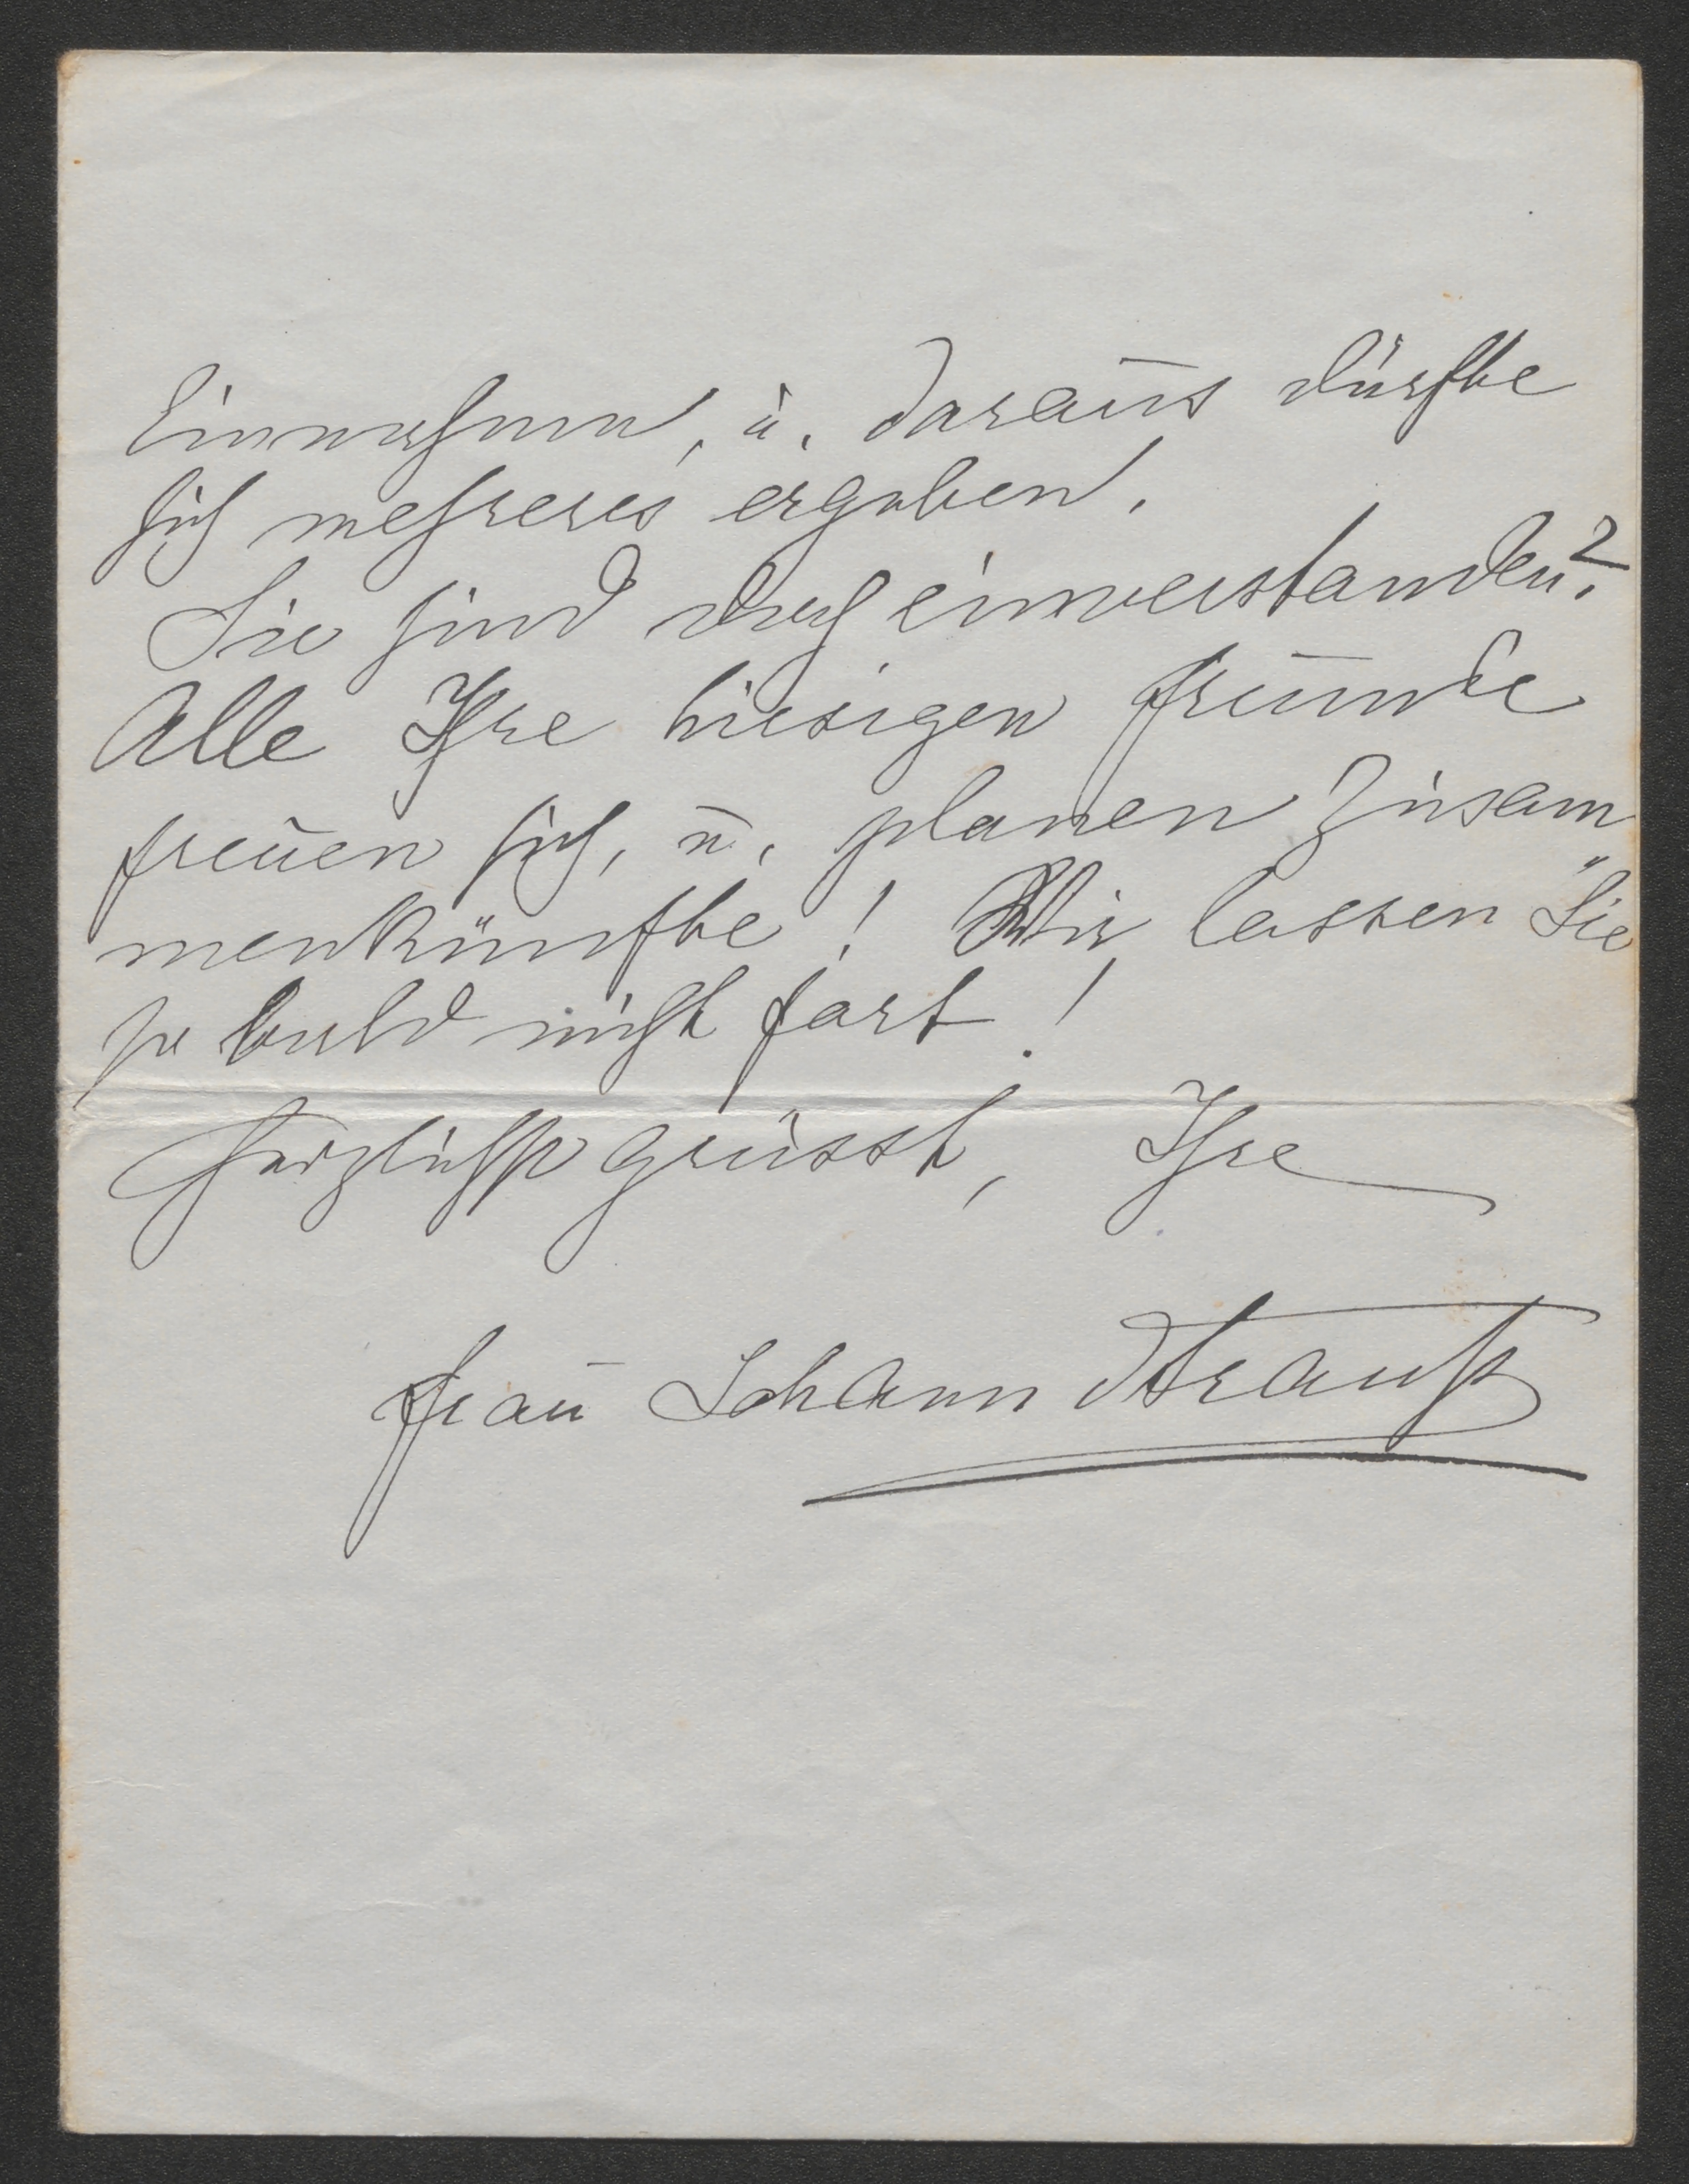 Einnehmen, u. daraus dürfte
sich mehreres ergeben.
Sie sind doch einverstanden?
Alle Ihre hiesigen Freunde
freuen sich, u. planen Zusam
menkünfte! Wir lassen Sie
so bald nicht fort!
Herzlichst grüsst, Ihre
Frau Johann Strauß